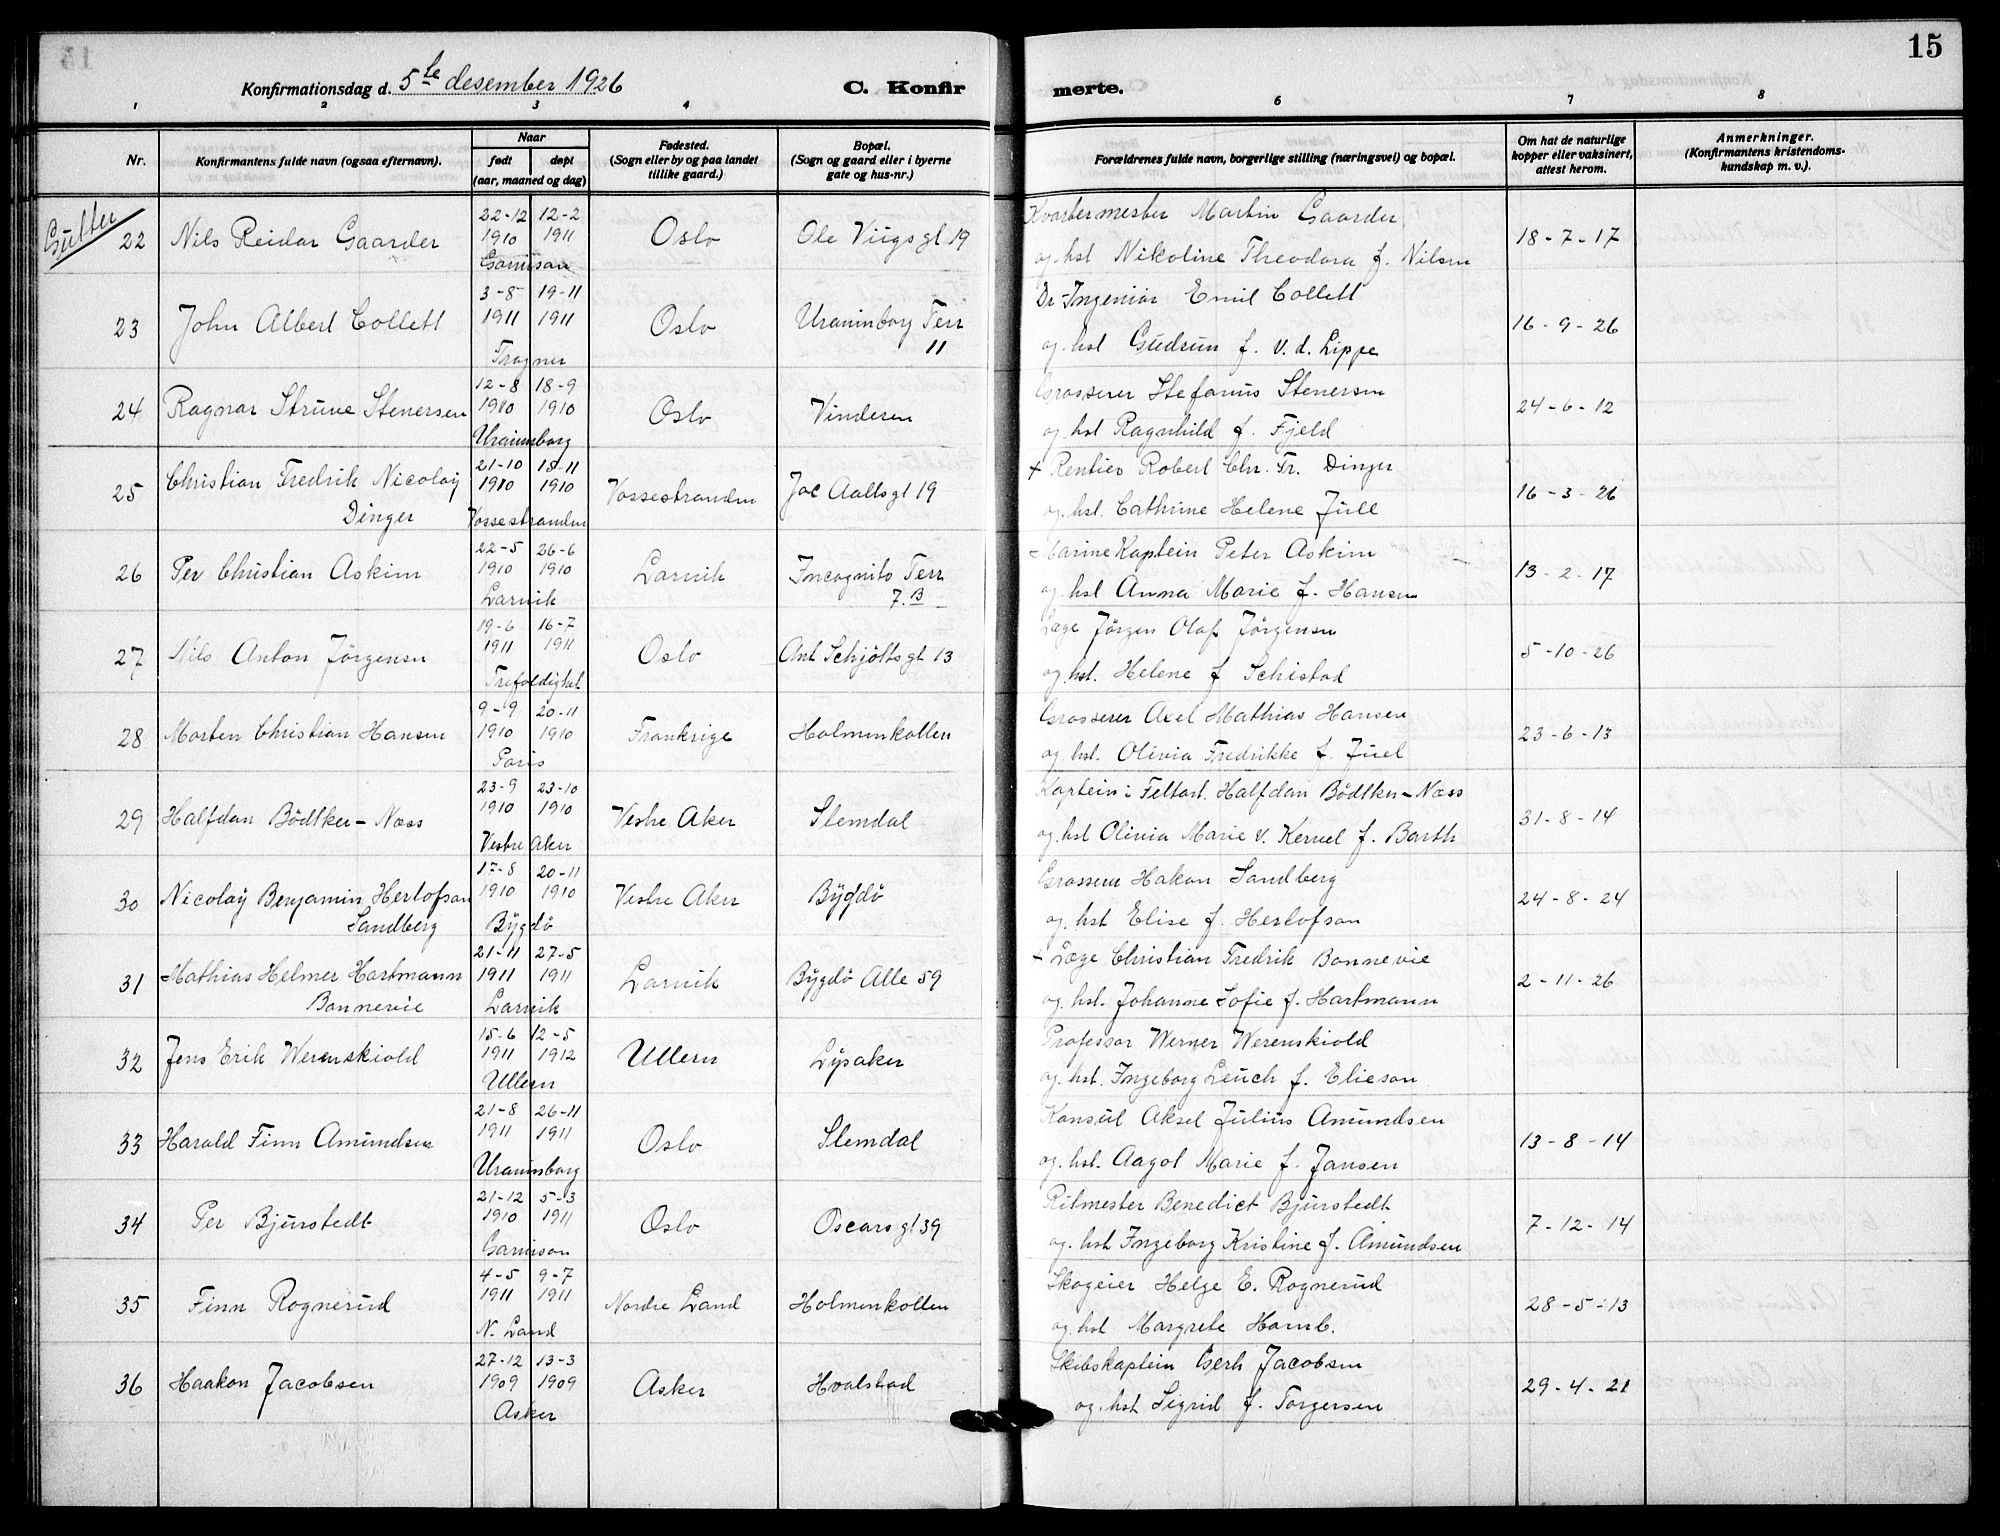 15
Konfirmationsdag d. 5te desember 1926
C. Konfir
merte.
1 2 3 4 6 7 8
Nr.
Konfirmantens fulde navn (ogsaa efternavn).
Naar
født
døpt
(aar, maaned og dag)
Fødested.
(Sogn eller by og paa landet
tillike gaard.)
Bopæl.
(Sogn og gaard eller i byerne
gate og hus-nr.)
Forældrenes fulde navn, borgerlige stilling (næringsvei) og bopæl.
Om hat de naturlige
kopper eller vaksinert,
attest herom.
Anmerkninger.
(Konfirmantens kristendoms-
kundskap m. v.).
Gutter
22 Nils Reidar Gaarder 22-12 1910 12-2 1911 Garnison Oslo Ole Viigsgt 19
Kvartermester Martin Gaarder
og hst Nikoline Theodora f. Nilsen
18-7-17
23 John Albert Collett 3-8 1911 19-11 1911 Frogner Oslo Uraninborg Terr 11
Dr-Ingeniør Emil Collett
og hst Gudrun f. v. d. Lippe
16-9-26
24 Ragnar Struve Stenersen 12-8 1910 18-9 1910 Uraninborg Oslo Vinderen
Grosserer Stefanus Stenersen
og hst Ragnhild f. Fjeld
24-6-12
25 Christian Fredrik Nicolay Dinger 21-10 1910 15-11 1910 Vossestranden Vossestranden Jac Aallsgt 19
+ Rentier Robert Chr. Fr. Dinger
og hst. Cathrine Helene Jull
16-3-26
26 Per Christian Askim 22-5 1910 26-6 1910 Larvik Larvik Incognito Terr 7.B
Marine Kaptein Peter Askim
og hst Anna Marie f. Hansen
13-2-17
27 Nils Anton Jörgensen 19-6 1911 16-7 1911 Trefoldighet Oslo Ant Schjöttsgt 13
Læge Jörgen Olaf Jörgensen
og hst. Helene f Schistad
5-10-26
28 Morten Christian Hansen 9-9 1910 20-11 1910 Paris Frankrige Holmenkollen
Grosserer Axel Mathias Hansen
og hst. Olivia Fredrikke f. Juel
23-6-13
29 Halfdan Bödtker-Næss 23-9 1910 23-10 1910 Vestre Aker Vestre Aker Slemdal
Kaptein i Feltart. Halfdan Bödtker-Næss
og hst Olivia Marie v. f. Barth
31-8-14
30 Nicolaÿ Benjamin Herlofson Sandberg 17-8 1910 20-11 1910 Bÿgdö Vestre Aker Bÿgdö
Grosserer Hakon Sandberg
og hst Elise f. Herlofson
24-8-24
31 Mathias Helmer Hartmann Bonnevie 21-11 1911 27-5 1911 Larvik Larvik Bÿgdö Alle 59
+ Læge Christian Fredrik Bonnevie
og hst. Johanne Sofie f. Hartmann
2-11-26
32 Jens Erik Werenskiold 15-6 1911 12-5 1912 Ullern Ullern Lÿsaker
Professor Werner Werenskiold
og hst. Ingeborg Leuch f. Elieson
33 Harald Finn Amundsen 21-8 1911 26-11 1911 Uraninborg Oslo Slemdal
Konsul Aksel Julius Amundsen
og hst. Aagot Marie f. Jansen
13-8-14
34 Per Bjurstedt 21-12 1910 5-3 1911 Garnison Oslo Oscarsgt 39
Ritmester Benedict Bjurstedt
og hst Ingeborg Kristine f. Amundsen
7-12-14
35 Finn Rognerud 4-5 1911 9-7 1911 N. Land Nordre Land Holmenkollen
Skogeier Helge E. Rognerud
og hst Margrete Homb.
28-5-13
36 Haakon Jacobsen 27-12 1909 13-3 1909 Asker Asker Hvalstad
Skibskaptein Gerh Jacobsen
og hst Sigrid f. Torgersen
29-4-21